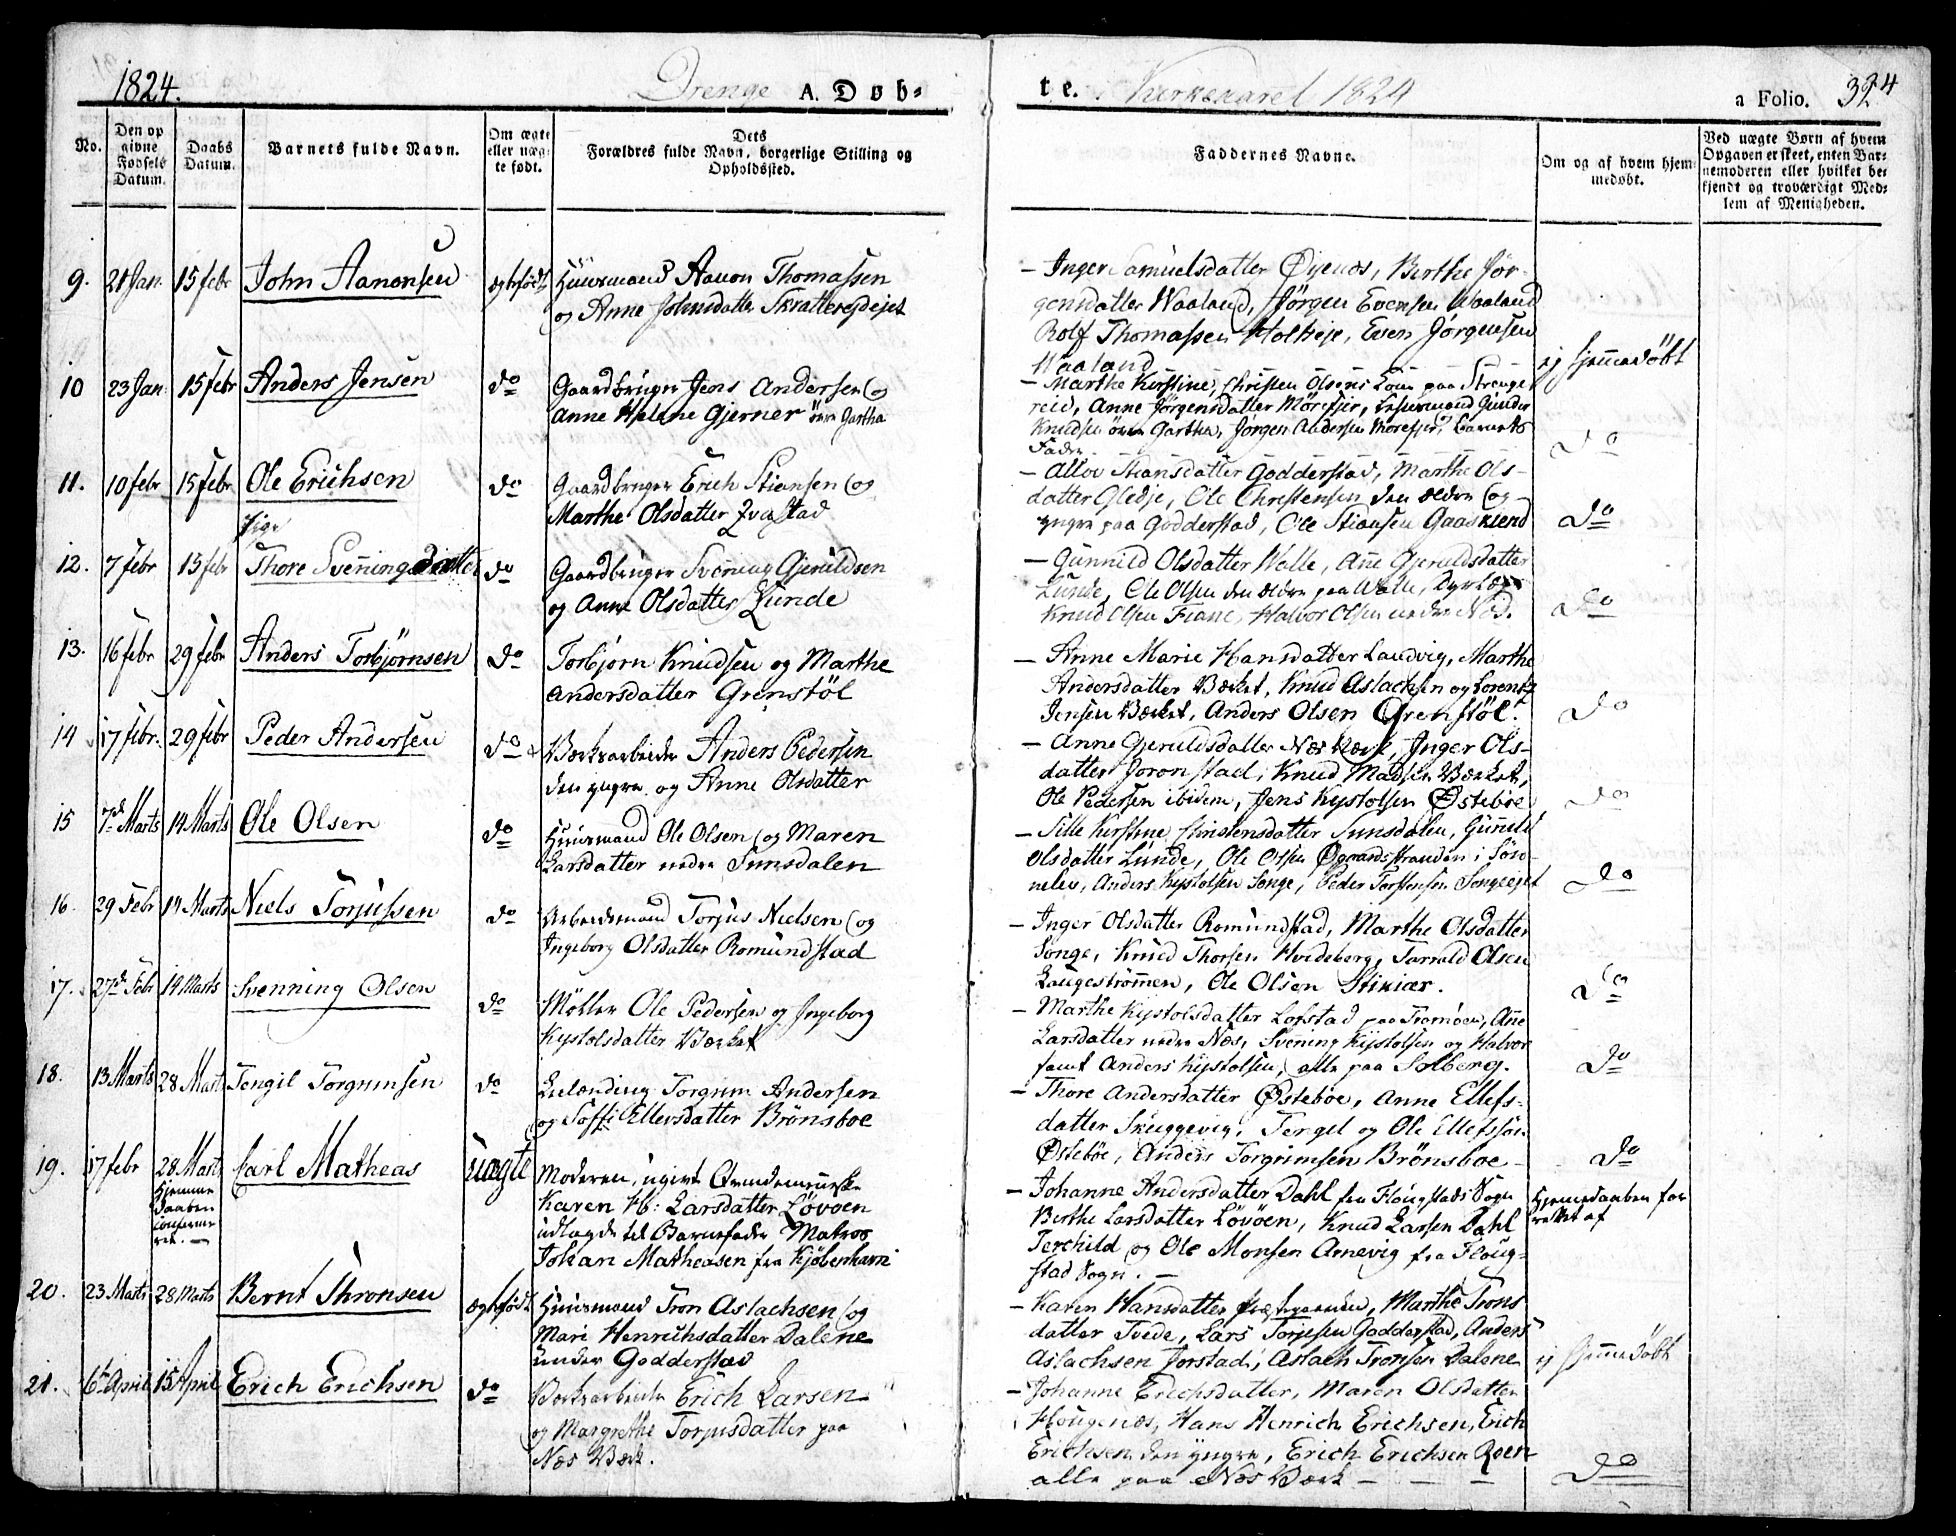 1824.
Drenge A. Døb-
te. Kirkeaaret 1824
a Folio. 324
No.
Den op
givne
Fødsels
Datum.
Daabs
Datum.
Barnets fulde Navn.
Om ægte
eller uæg-
te født.
Dets
Forældres fulde Navn, borgerlige Stilling og
Opholdssted.
Faddernes Navne.
Om og af hvem hjem-
medøbt.
Ved uægte Børn af hvem
Opgaven er skeet, enten Bar-
nemoderen eller hvilket be-
kjendt og troværdigt Med-
lem af Menigheden.
9. 21 Jan. 15 febr John Aanonsen ægtefødt Huusmand Aanon Thomassen
og Anne Johnsdatter
– Inger Samuelsdatter Øyenæs, Birthe Jør-
gensdatter Waaland, Jørgen Evensen Waaland
Rolf Thomassen Holtheje, Even Jørgensen
Waaland
ej hjemmedøbt
10 23 Jan. 15 Febr Anders Jensen do Gaardbruger Jens Andersen og
Anne Helene Gjerner Gartha
– Marthe Kirstine, Christen Olsens Kone paa Strenge-
reid, Anne Jørgensdatter Mørefjer, Gunder
Knudsen Gartha, Jørgen Andersen Morefjer, Barnets
Fader
do
11. 10 febr 15 febr Ole Erichsen do Gaardbruger Erich Stiansen og
Marthe Olsdatter
– Stiansdatter Godderstad, Marthe Ols-
datter Gledje, Ole Christensen den ældre og
yngre paa Godderstad, Ole Stiansen Gaaskiend
do
Pige
12. 7 febr 15 febr Thore Svenningsdatter do Gaardbruger Svenning Gjeruldsen
og Anne Olsdatter Lunde
– Gunnild Olsdatter Walle, Anne Gjeruldsdatter
Lunde, Ole Olsen den ældre paa Walle,
Knud Olsen Fiane, Halvor Olsen nedre Næs.
do
13. 16 febr 29 febr Anders Torbjørnsen do Torbjørn Knudsen og Marthe
Andersdatter Grenstøl
– Anne Marie Hansdatter Landvig, Marthe
Andersdatter Værket, Knud Aslachsen og Lorentz
Jensen Værket, Anders Olsen Grenstøl.
do
14 17 febr. 29 febr Peder Andersen do Værksarbeider Anders Pedersen
den yngre og Anne Olsdatter
– Anne Gjeruldsdatter Næs Værk, Inger Ols-
datter Joronstad, Knud Madsen Værket,
Ole Pedersen ibidem, Jens Kystolsen Østebøe
do
15 7d Marts 14 Marts Ole Olsen do Huusmand Ole Olsen og Maren
Larsdatter nedre Sunsdalen
– Sille Kirstine Christensdatter Sunsdalen, Gunnild
Olsdatter Lunde, Ole Olsen i Søn-
delev, Anders Kystolsen Songe, Peder Torstensen Songeeiet
do
16. 29 Febr 14 Marts Niels Torjussen do Arbeidsmand Torjus Nielsen og
Ingeborg Olsdatter Romundstad
– Inger Olsdatter Romundstad, Marthe Olsdatter
Songe, Knud Thorsen Hvideberg, Tarrald Olsen
Laugestrømmen, Ole Olsen Stikiær.
do
17. 27d Febr 14 Marts Svenning Olsen do Møller Ole Pedersen og Ingeborg
Kystolsdatter Værket
– Marthe Kystolsdatter Lofstad paa Tromøen, Anne
Larsdatter nedre Næs, Svening Kystolsen og Halvor
samt Anders Kystolsen, alle paa Solberg.
do
18. 13 Marts 28 Marts Tengil Torgrimsen do Leilænding Torgrim Andersen
og Soffi Ellevsdatter Brønsboe
– Thore Andersdatter Østeboe, Anne Ellefs-
datter Skuggevig, Tergel og Ole Ellefssøn
Østebøe, Anders Torgrimsen Brønsboe
do
19. 17 febr 28 Marts
Hjemme
Daaben
confirme-
ret. –
Carl Matheas uægte Moderen, ugivt
Karen H: Larsdatter Løvøen
udlagde til Barnefader Matros
Johan Matheasen fra Kjøbenhavn
– Johanne Andersdatter Dahl fra Flougstads Sogn
Birthe Larsdatter Løvøen, Knud Larsen Dahl
Terchild og Ole Monsen Arnevig fra Floug-
stad Sogn. –
Hjemmedaaben for
rettet af
20. 23 Marts 28 Marts Bernt Thronsen ægtefødt Huusmand Tron Aslachsen og
Mari Henrichsdatter Dalene
under Godderstad
– Karen Hansdatter Marthe Trons
datter Tvede, Lars Torjesen Godderstad, Anders
Aslachsen Jorstad, Aslach Tronsen Dalene
ej hjemmedøbt
21. 6t April 15 April Erich Erichsen do Værksarbeider Erich Larsen
og Margrethe Torjusdatter paa
Næs Værk.
– Johanne Erichsdatter, Maren Olsdatter
Hougenæs, Hans Henrich Erichsen, Erich
Erichsen den yngre, Erich Erichsen Roen
alle paa Næs Værk –
do